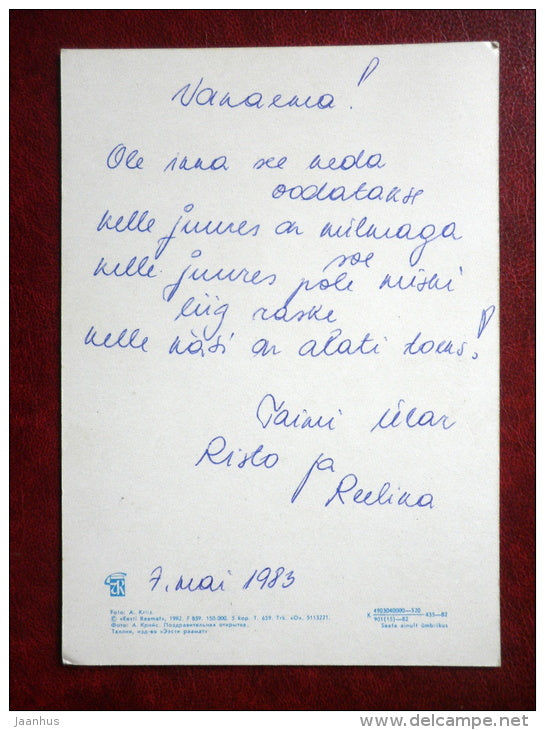 Vanaema!
Ole ikka see keda
oodatakse
kelle juures on külmaga
soe
kelle juures pole miski
liig raske
kelle käsi on alati toeks!
Taimi Ülar
Risto ja
Reelika
7. mai 1983
Foto: A. Kriis.
© «Eesti Raamat», 1982. F 859. 150.000. 5 kop. T. 639. Trk. «O». 5113221.
Фото: А. Крийс. Поздравительная открытка.
Таллин, изд-во «Ээсти раамат»
К 4903040000—320 435—82
901(15)—82
Saata ainult ümbrikus
www.delcampe.net
Jaanhus